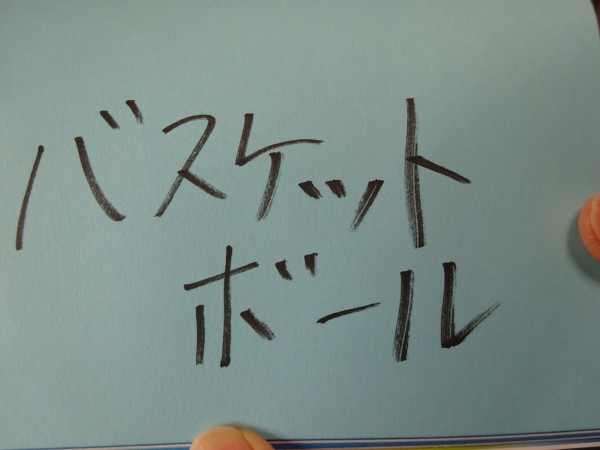 バスケット
ボール